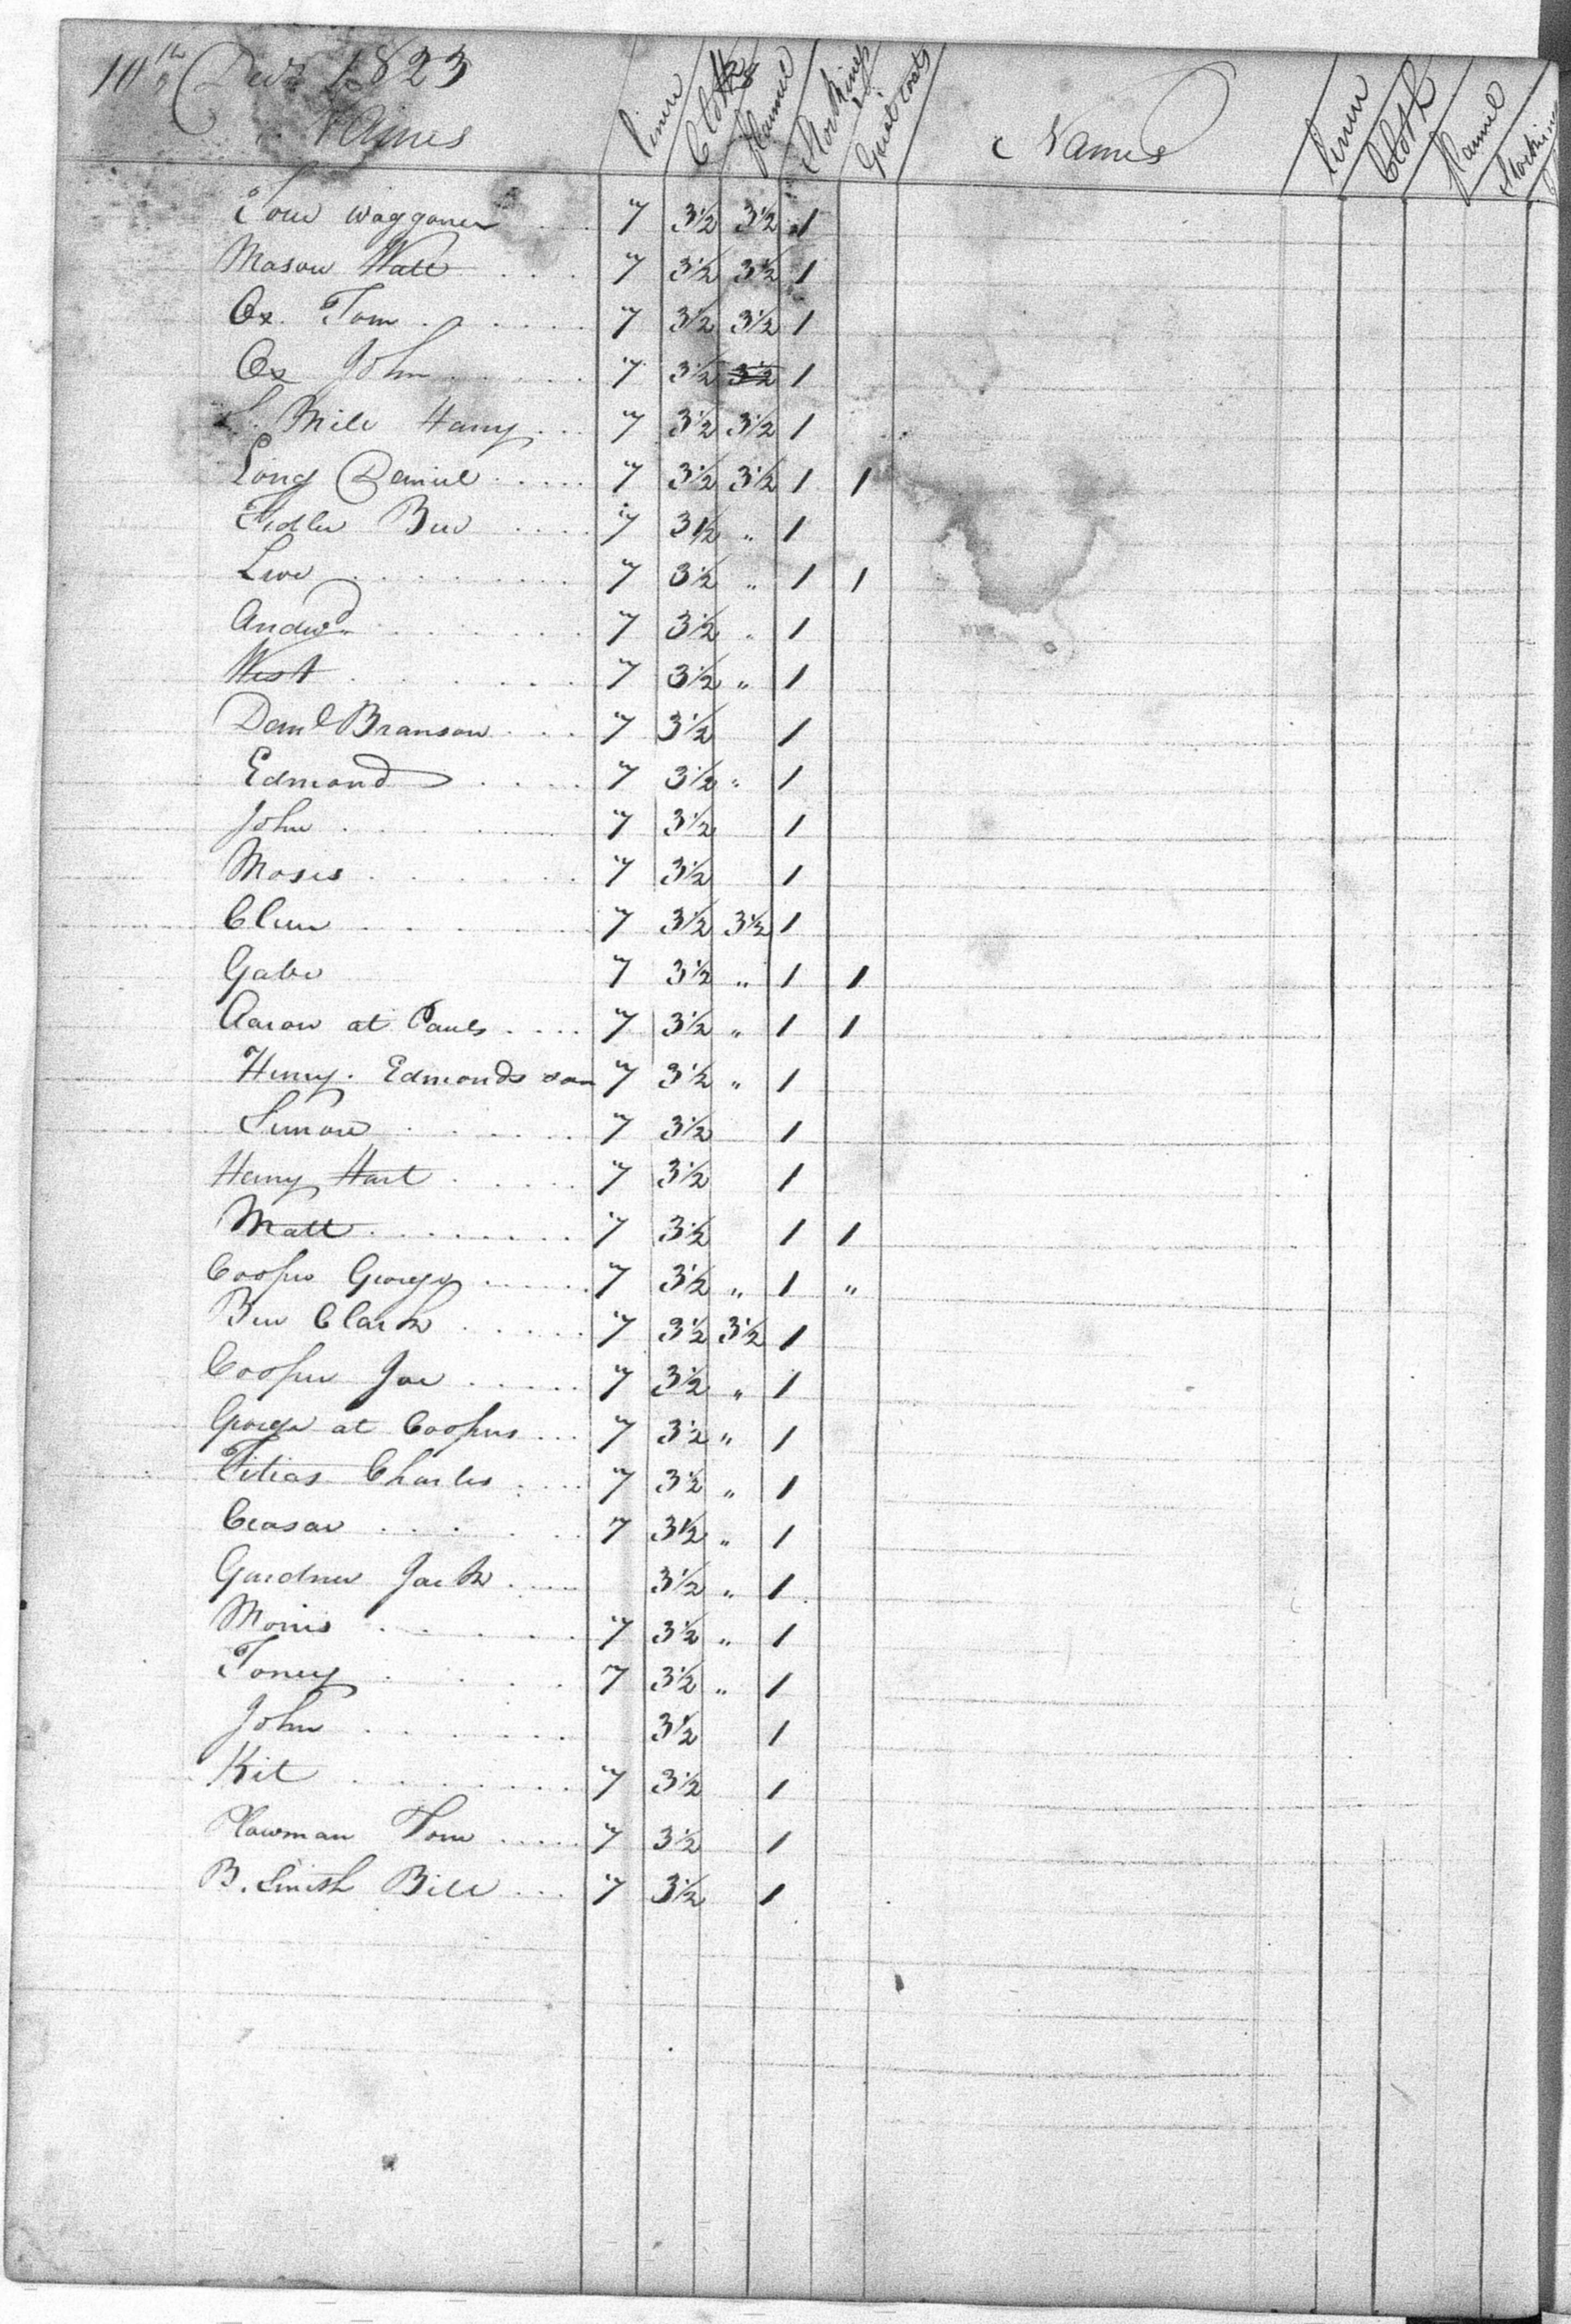 10th Decr 1823
Names linen Cloth flannel Stockings Great Coats Names linen Cloth flannel Stockings
Tom Waggoner . . 7 3½ 3½ 1
Mason Watt . . . 7 3½ 3½ 1
Ox. Tom . . . . . 7 3½ 3½ 1
Ox John . . . . . 7 3½ 3½ 1
S. Mill Harry . . . 7 3½ 3½ 1
Long Daniel . . . . . 7 3½ 3½ 1 1
Fidler Ben . . . . 7 3½ " 1
Levi . . . . . . . . 7 3½ " 1 1
Andw . . . . . . . 7 3½ " 1
West . . . . . . . 7 3½ " 1
Danl Branson . . . 7 3½ 1
Edmond . . . . 7 3½ " 1
John . . . . . . 7 3½ 1
Moses . . . . . . 7 3½ 1
Clem . . . . . . 7 3½ 3½ 1
Gabe 7 3½ " 1 1
Aaron at Pauls . . . . 7 3½ " 1 1
Henry. Edmonds son 7 3½ " 1
Simon . . . . . . 7 3½ 1
Henry Hart . . . . . 7 3½ 1
Matt . . . . . . . . 7 3½ 1 1
Cooper George . . . . . . 7 3½ " 1 "
Ben Clark . . . . . . 7 3½ 3½ 1
Cooper Joe . . . . . 7 3½ " 1
George at Coopers . . . 7 3½ " 1
Titias Charles . . . . 7 3½ " 1
Ceasar . . . . . . 7 3½ " 1
Gardner Jack . . . . . 3½ " 1
Morris . . . . . 7 3½ " 1
Toney . . . . . 7 3½ " 1
John . . . . . . . 3½ 1
Kit . . . . . . . . 7 3½ 1
Plowman Tom . . . . . 7 3½ 1
B. Smith Bill . . . 7 3½ 1